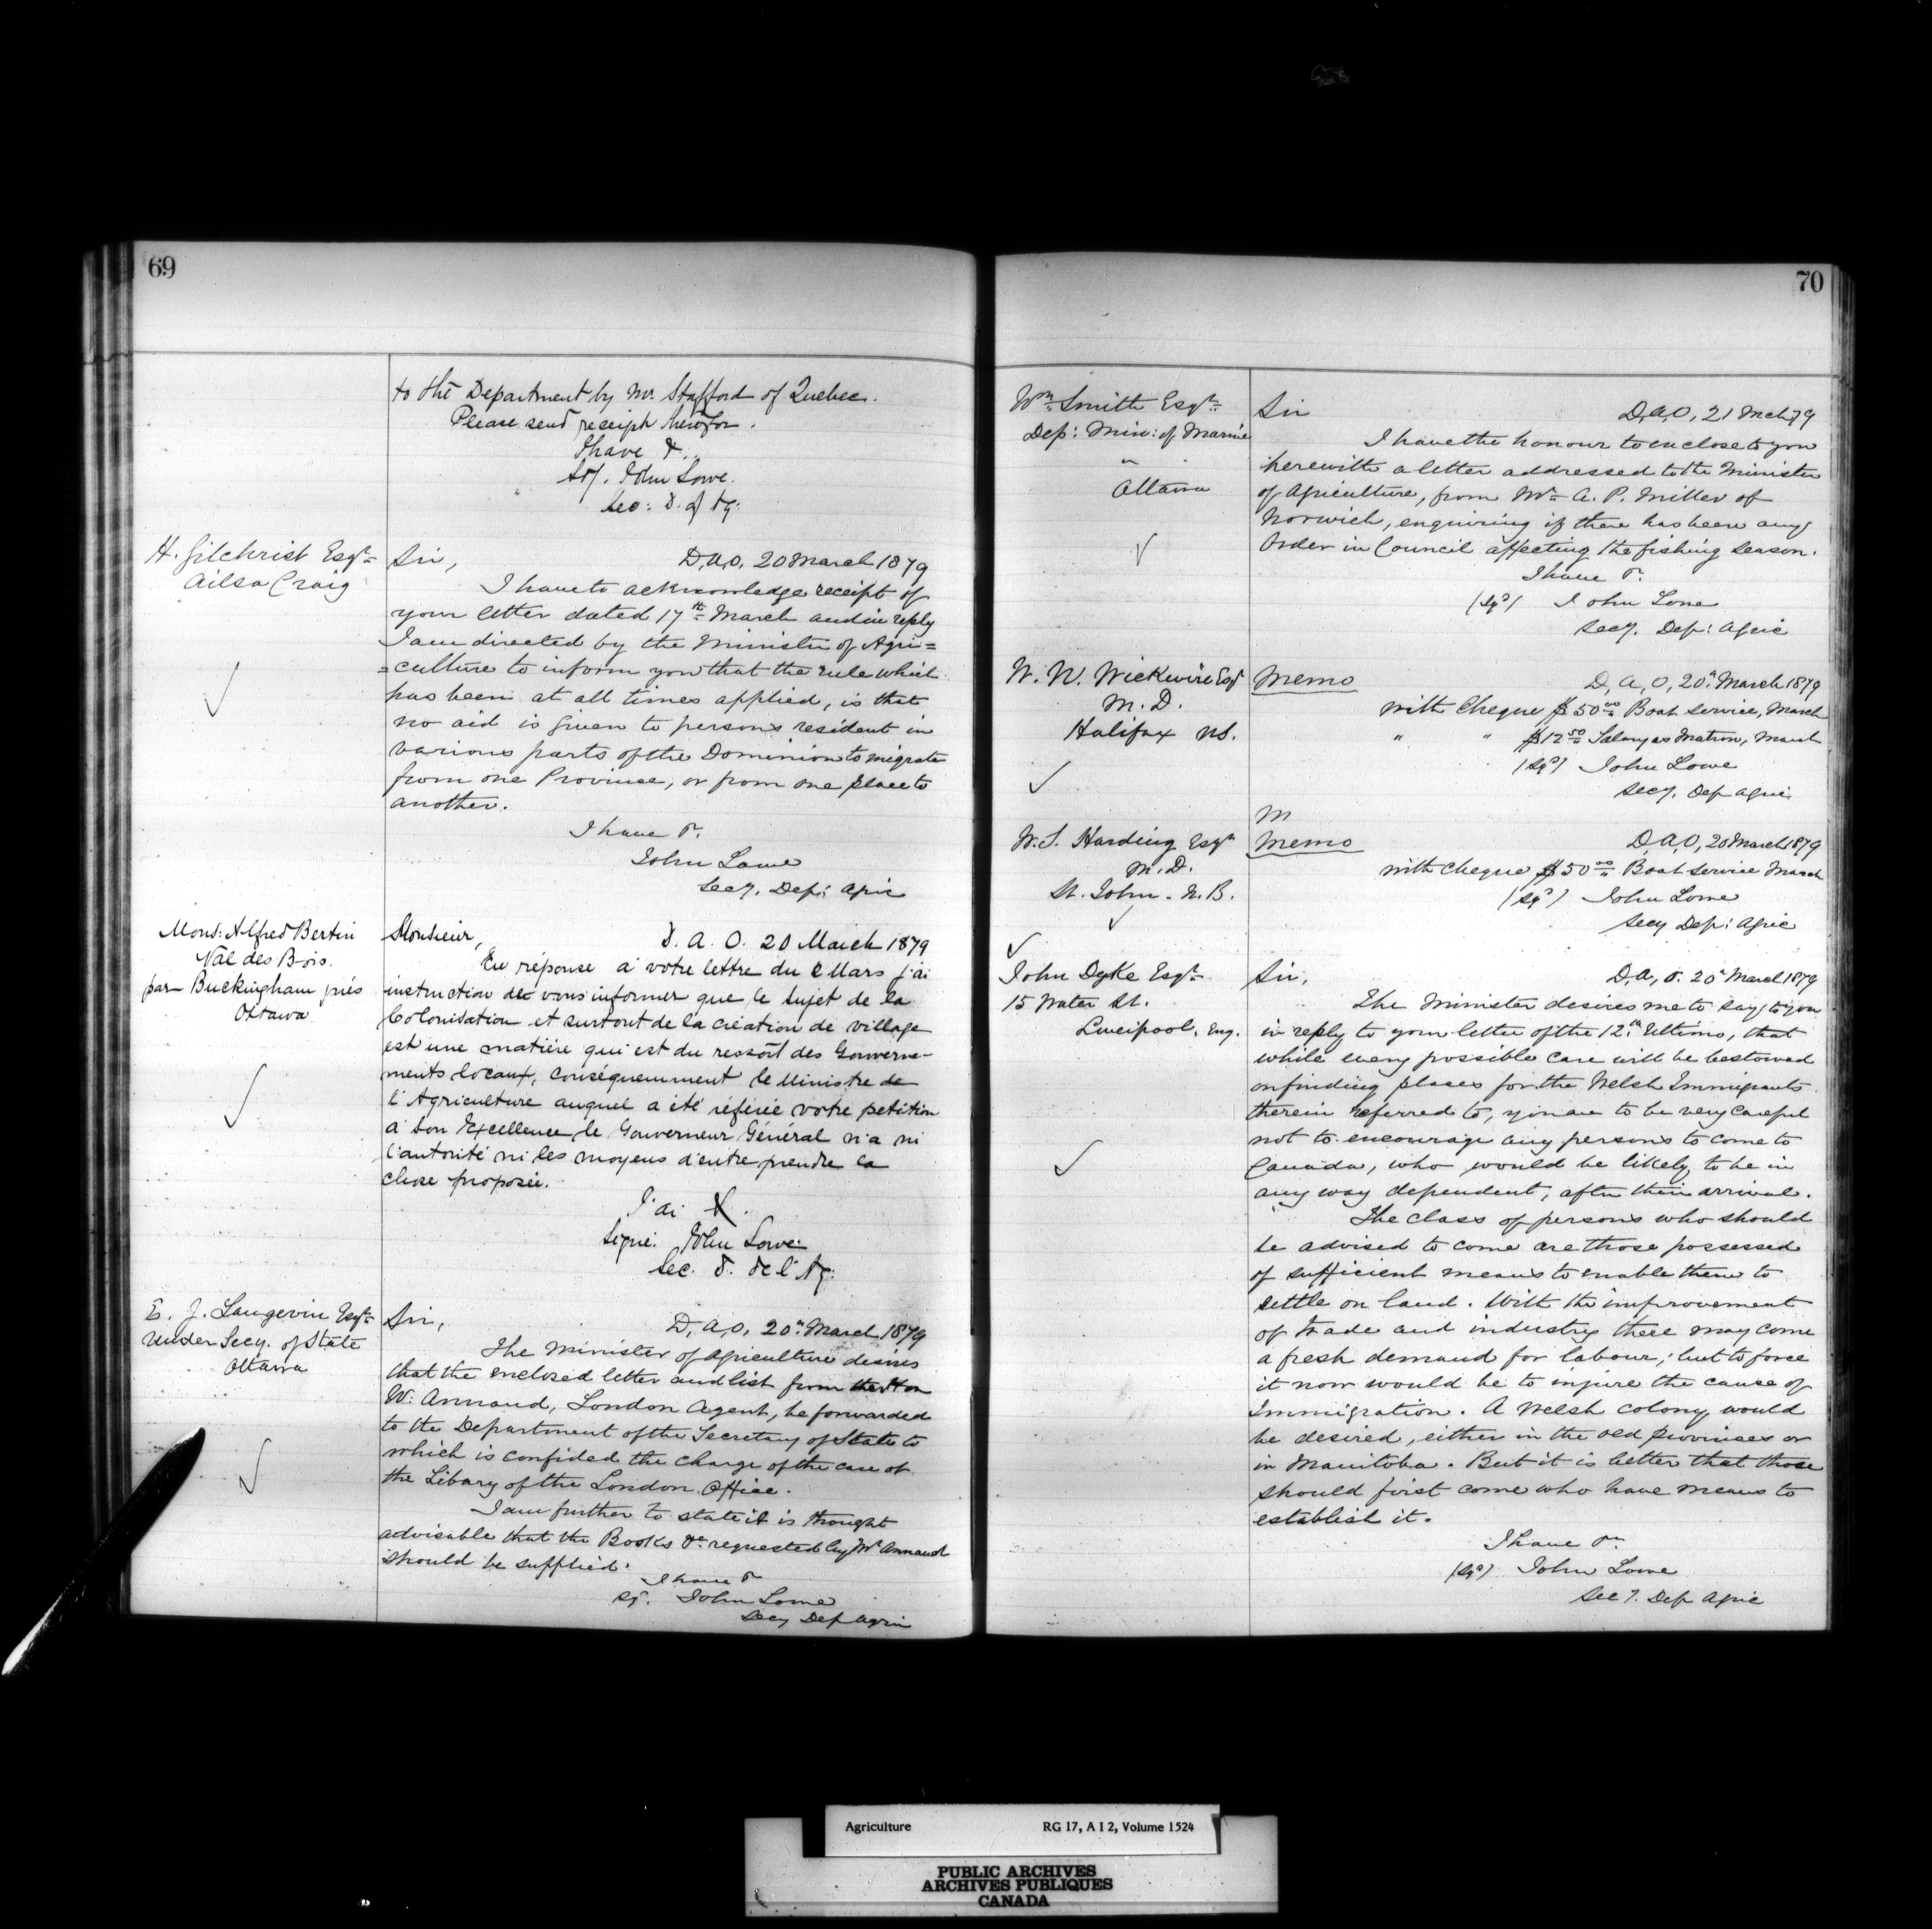 69
to the Department by Mr. Stafford of Quebec.
Please send receipt therefor.
I have &..
Sd/. John Lowe.
Sec: D. of Ag:
H. Gilchrist Esqr.
Ailsa Craig
Sir,
D.A,O, 20 March 1879
I have to acknowledge receipt of
your letter dated 17th March and in reply
I am directed by the Minister of Agri=
=culture to inform you that the rule which
has been at all times applied, is that
no aid is given to persons resident in
various parts of the Dominion to migrate
from one Province, or from one place to
another.
I have &.
John Lowe
Secy, Dep: Agric
Mons: Alfred Bertin
Val des Bois.
par Buckingham près
Ottawa
Monsieur,
D. A. O. 20 March 1879
En réponse à votre lettre du 2 Mars j'ai
instruction de vous informer que le sujet de la
Colonisation et surtout de la création de village
est une matière qui est du ressort des Gouverne-
ments locaux, conséquemment le Ministre de
l'Agriculture auquel a été référée votre petition
à Son Excellence le Gouverneur Général n'a ni
l'autorité ni les moyens d'entreprendre la
chose proposée.
J'ai &.
Signé: John Lowe
Sec. D. de l'Ag:
E. J. Langevin Esqr.
Under Secy. of State
Ottawa
Sir,
D, A,O, 20th March 1879
The Minister of Agriculture desires
that the enclosed letter and list from the Hon
W. Annand, London Agent, be forwarded
to the Department of the Secretary of State to
which is confided the charge of the care of
the Libary of the London Office.
I am further to state it is thought
advisable that the Books &c requested by Mr Annand
should be supplied.
I have &
Sd. John Lowe
Secy Dep Agric
70
Wm Smith Esqr.
Dep: Min: of Marine
"
Ottawa
Sir
D,A,O, 21 Mch 79
I have the honour to enclose to you
herewith a letter addressed to the Minister
of Agriculture, from Mr A. P. Miller of
Norwich, enquiring if there has been any
Order in Council affecting the fishing season.
I have &.
(Sgd) John Lowe
Secy. Dep: Agric
W. N. Wickwire Esqr
M.D.
Halifax NS.
Memo
D, A, O, 20th March 1879
with Cheque $50 00 Boat service, March
" " $12 50 Salary as Matron, March
(Sgd) John Lowe
Secy. Dep Agric
M
W. S. Harding Esqr
M.D.
St. John. N.B.
Memo
D,A,O, 20 March 1879
with cheque $50 00 Boat service March
(Sgd) John Lowe
Secy Dep: Agric
John Dyke Esqr.
15 Water St.
Liverpool, Eng.
Sir,
D,A, O. 20th March 1879
The Minister desires me to say to you
in reply to your letter of the 12th Ultimo, that
while every possible care will be bestowed
on finding places for the Welsh Immigrants
therein referred to, you are to be very careful
not to encourage any persons to come to
Canada, who would be likely, to be in
any way dependent, after their arrival.
The class of persons who should
be advised to come are those possessed
of sufficient means to enable them to
settle on land. With the improvement
of trade and industry there may come
a fresh demand for labour; but to force
it now would be to injure the cause of
Immigration. A Welsh colony would
be desired, either in the old provinces or
in Manitoba. But it is better that those
should first come who have means to
establish it.
I have &c
(Sgd) John Lowe
Secy. Dep Agric
Agriculture RG 17, A I 2, Volume 1524
PUBLIC ARCHIVES
ARCHIVES PUBLIQUES
CANADA